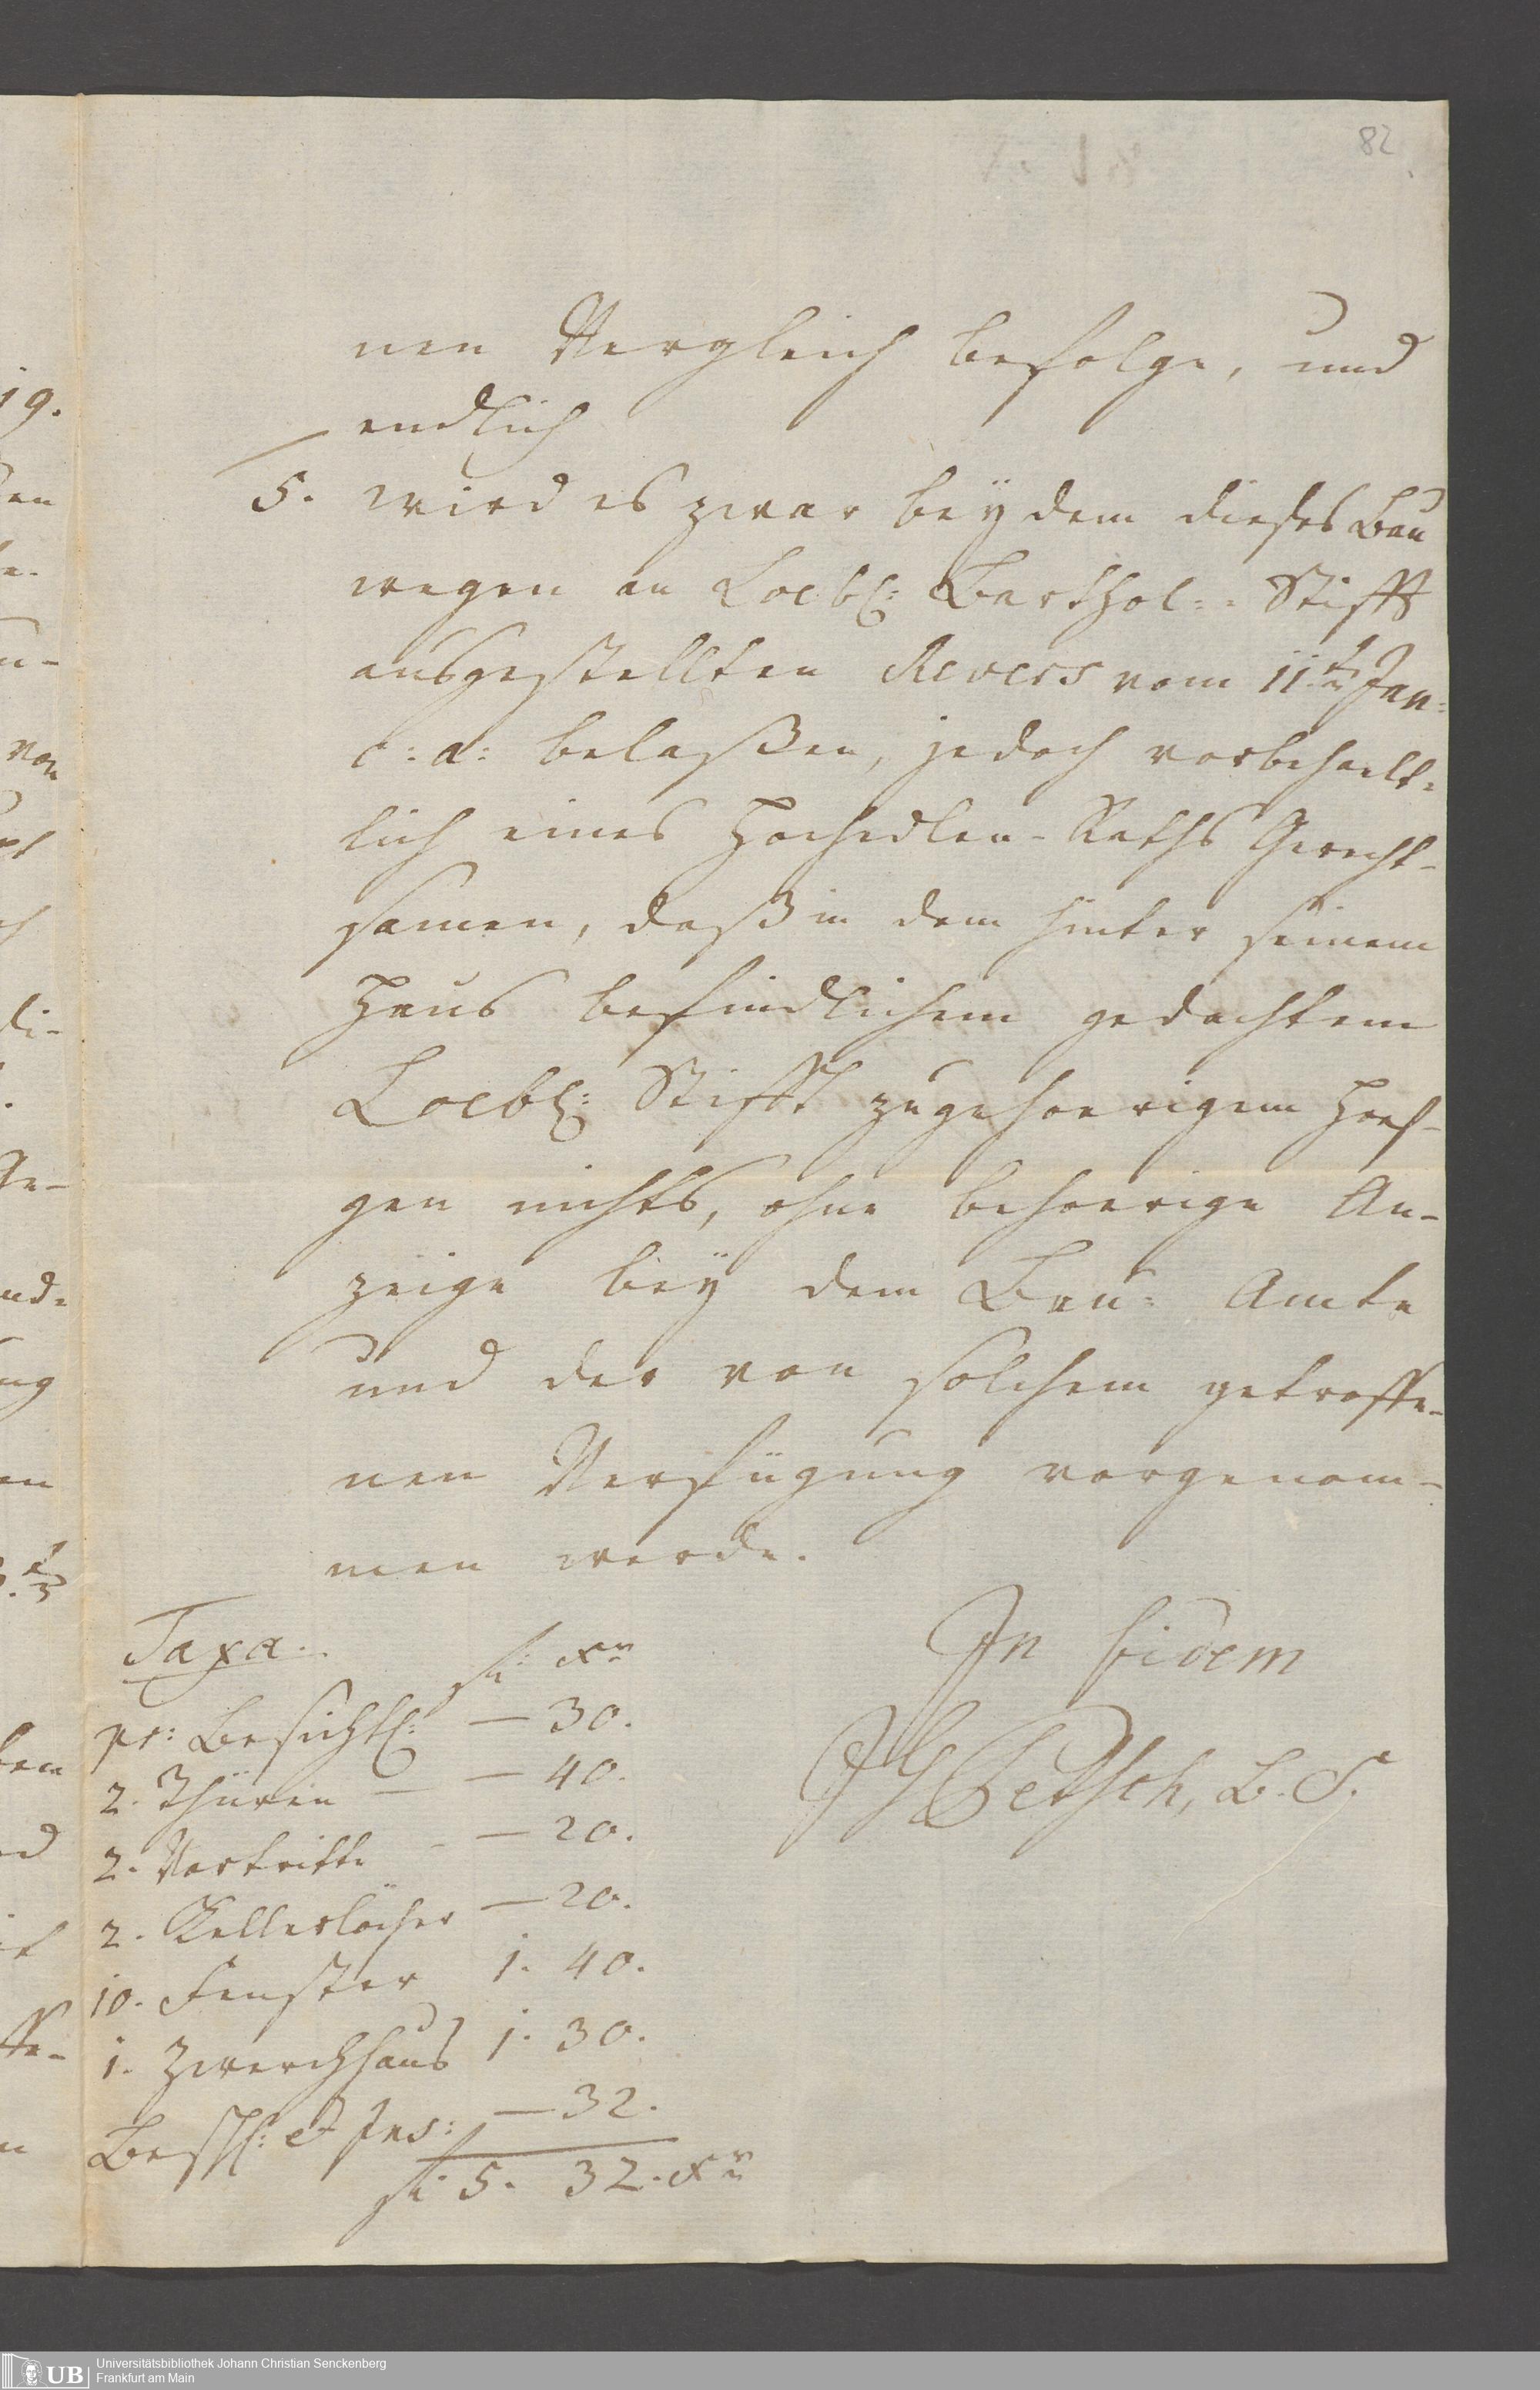 82
nen Vergleich befolge, und
endlich
5. wird es zwar beÿ dem dieses Bau
wegen an Loebl: Barthol:- Stifft
ausgestellten Revers vom 11ten Jan:
c: a: belaßen, jedoch vorbehaelt-
lich eines Hochedlen-Raths Gerecht-
samen, daß in dem hinter seinem
Haus befindlichem gedachtem
Loebl: Stifft zugehoerigem Hoef-
gen nichts, ohne behoerige An-
zeige beÿ dem Bau- Amte
und der von solchem getroffe-
nen Verfügung vorgenom-
men werde.
In fidem
Taxa.
fl: Xr
pr: Besichtl: — 30.
2. Thüren — — 40.
2. Vortritte — — 20.
2. Kellerlöcher — 20.
10. Fenster 1. 40.
1. Zwerchhaus 1. 30.
Beschl: et Ins: — 32.
fl. 5. 32. Xr
Petsch, B. S.
19.
von
UB Universitätsbibliothek Johann Christian Senckenberg
Frankfurt am Main